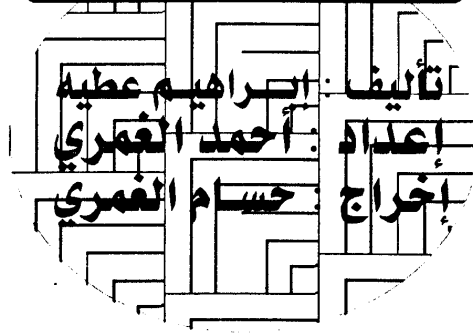 تأليف : إبراهيم عطيه
إعداد : أحمد الغمري
إخراج : حسام الغمري